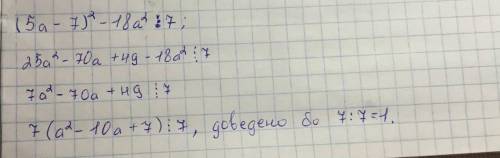 (5a - 7)² - 18a² ⋮ 7;
25a² - 70a + 49 - 18a² ⋮ 7
7a² - 70a + 49 ⋮ 7
7(a² - 10a + 7) ⋮ 7, доведено бо 7:7=1.